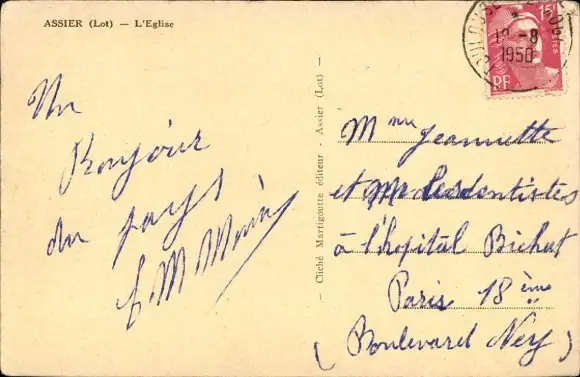 ASSIER (Lot) — L'Eglise
Un
Bonjour
du pays
— Cliché Martigoutte éditeur - Assier (Lot) —
15F
RF
TOULOUSE
12 -8
1950
Mme Jeannette
et dentistes
à l'hopital Bichat
Paris 18ème
(Boulevard Ney)